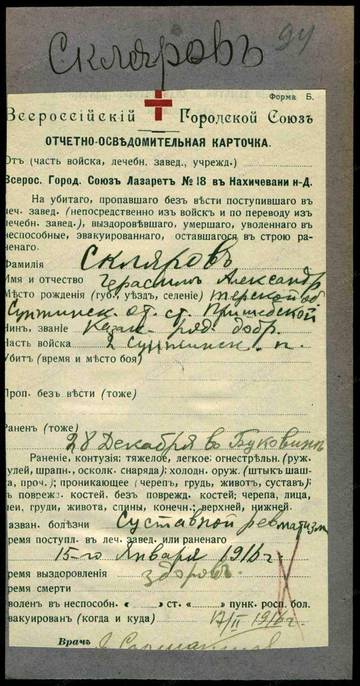 Скляровъ 94
Форма Б.
Всероссійскій Городской Союзъ
ОТЧЕТНО-ОСВѢДОМИТЕЛЬНАЯ КАРТОЧКА.
Отъ (часть войска, лечебн. завед., учрежд.)
Всерос. Город. Союзъ Лазаретъ №18 въ Нахичевани н-Д.
На убитаго, пропавшаго безъ вѣсти поступившаго въ
леч. завед. (непосредственно изъ войскъ и по переводу изъ
лечебн. завед.), выздоровѣвшаго, умершаго, уволеннаго въ
неспособные, эвакуированнаго, оставшагося въ строю ра-
ненаго.
Фамилія Скляровъ
Имя и отчество Герасимъ Александр
Мѣсто рожденія (губ., уѣздъ, селеніе) Терской об
Сунженск. от. ст.
Чинъ, званіе Казак ряд. добр.
Часть войска 2 Сунженск. п.
Убитъ (время и мѣсто боя)
Проп. безъ вѣсти (тоже)
Раненъ (тоже)
28 Декабря въ Буковинѣ
Раненіе, контузія: тяжелое, легкое: огнестрѣльн. (руж.
пулей, шрапн., осколк. снаряда); холодн. оруж. (штыкъ шаш-
ка, проч.); проникающее (черепъ, грудь, животъ, суставъ);
съ поврежд. костей, безъ поврежд. костей; черепа, лица,
шеи, груди, живота, спины, конечн.; верхней, нижней.
Назван. болѣзни Суставной ревматизм
Время поступл. въ леч. завед. или раненаго
15-го Января 1916 г.
Время выздоровленія здоровъ
Время смерти
Уволенъ въ неспособн. «» ст. «» пунк. росп. бол.
Эвакуированъ (когда и куда) 17/II 1916 г.
Врачъ